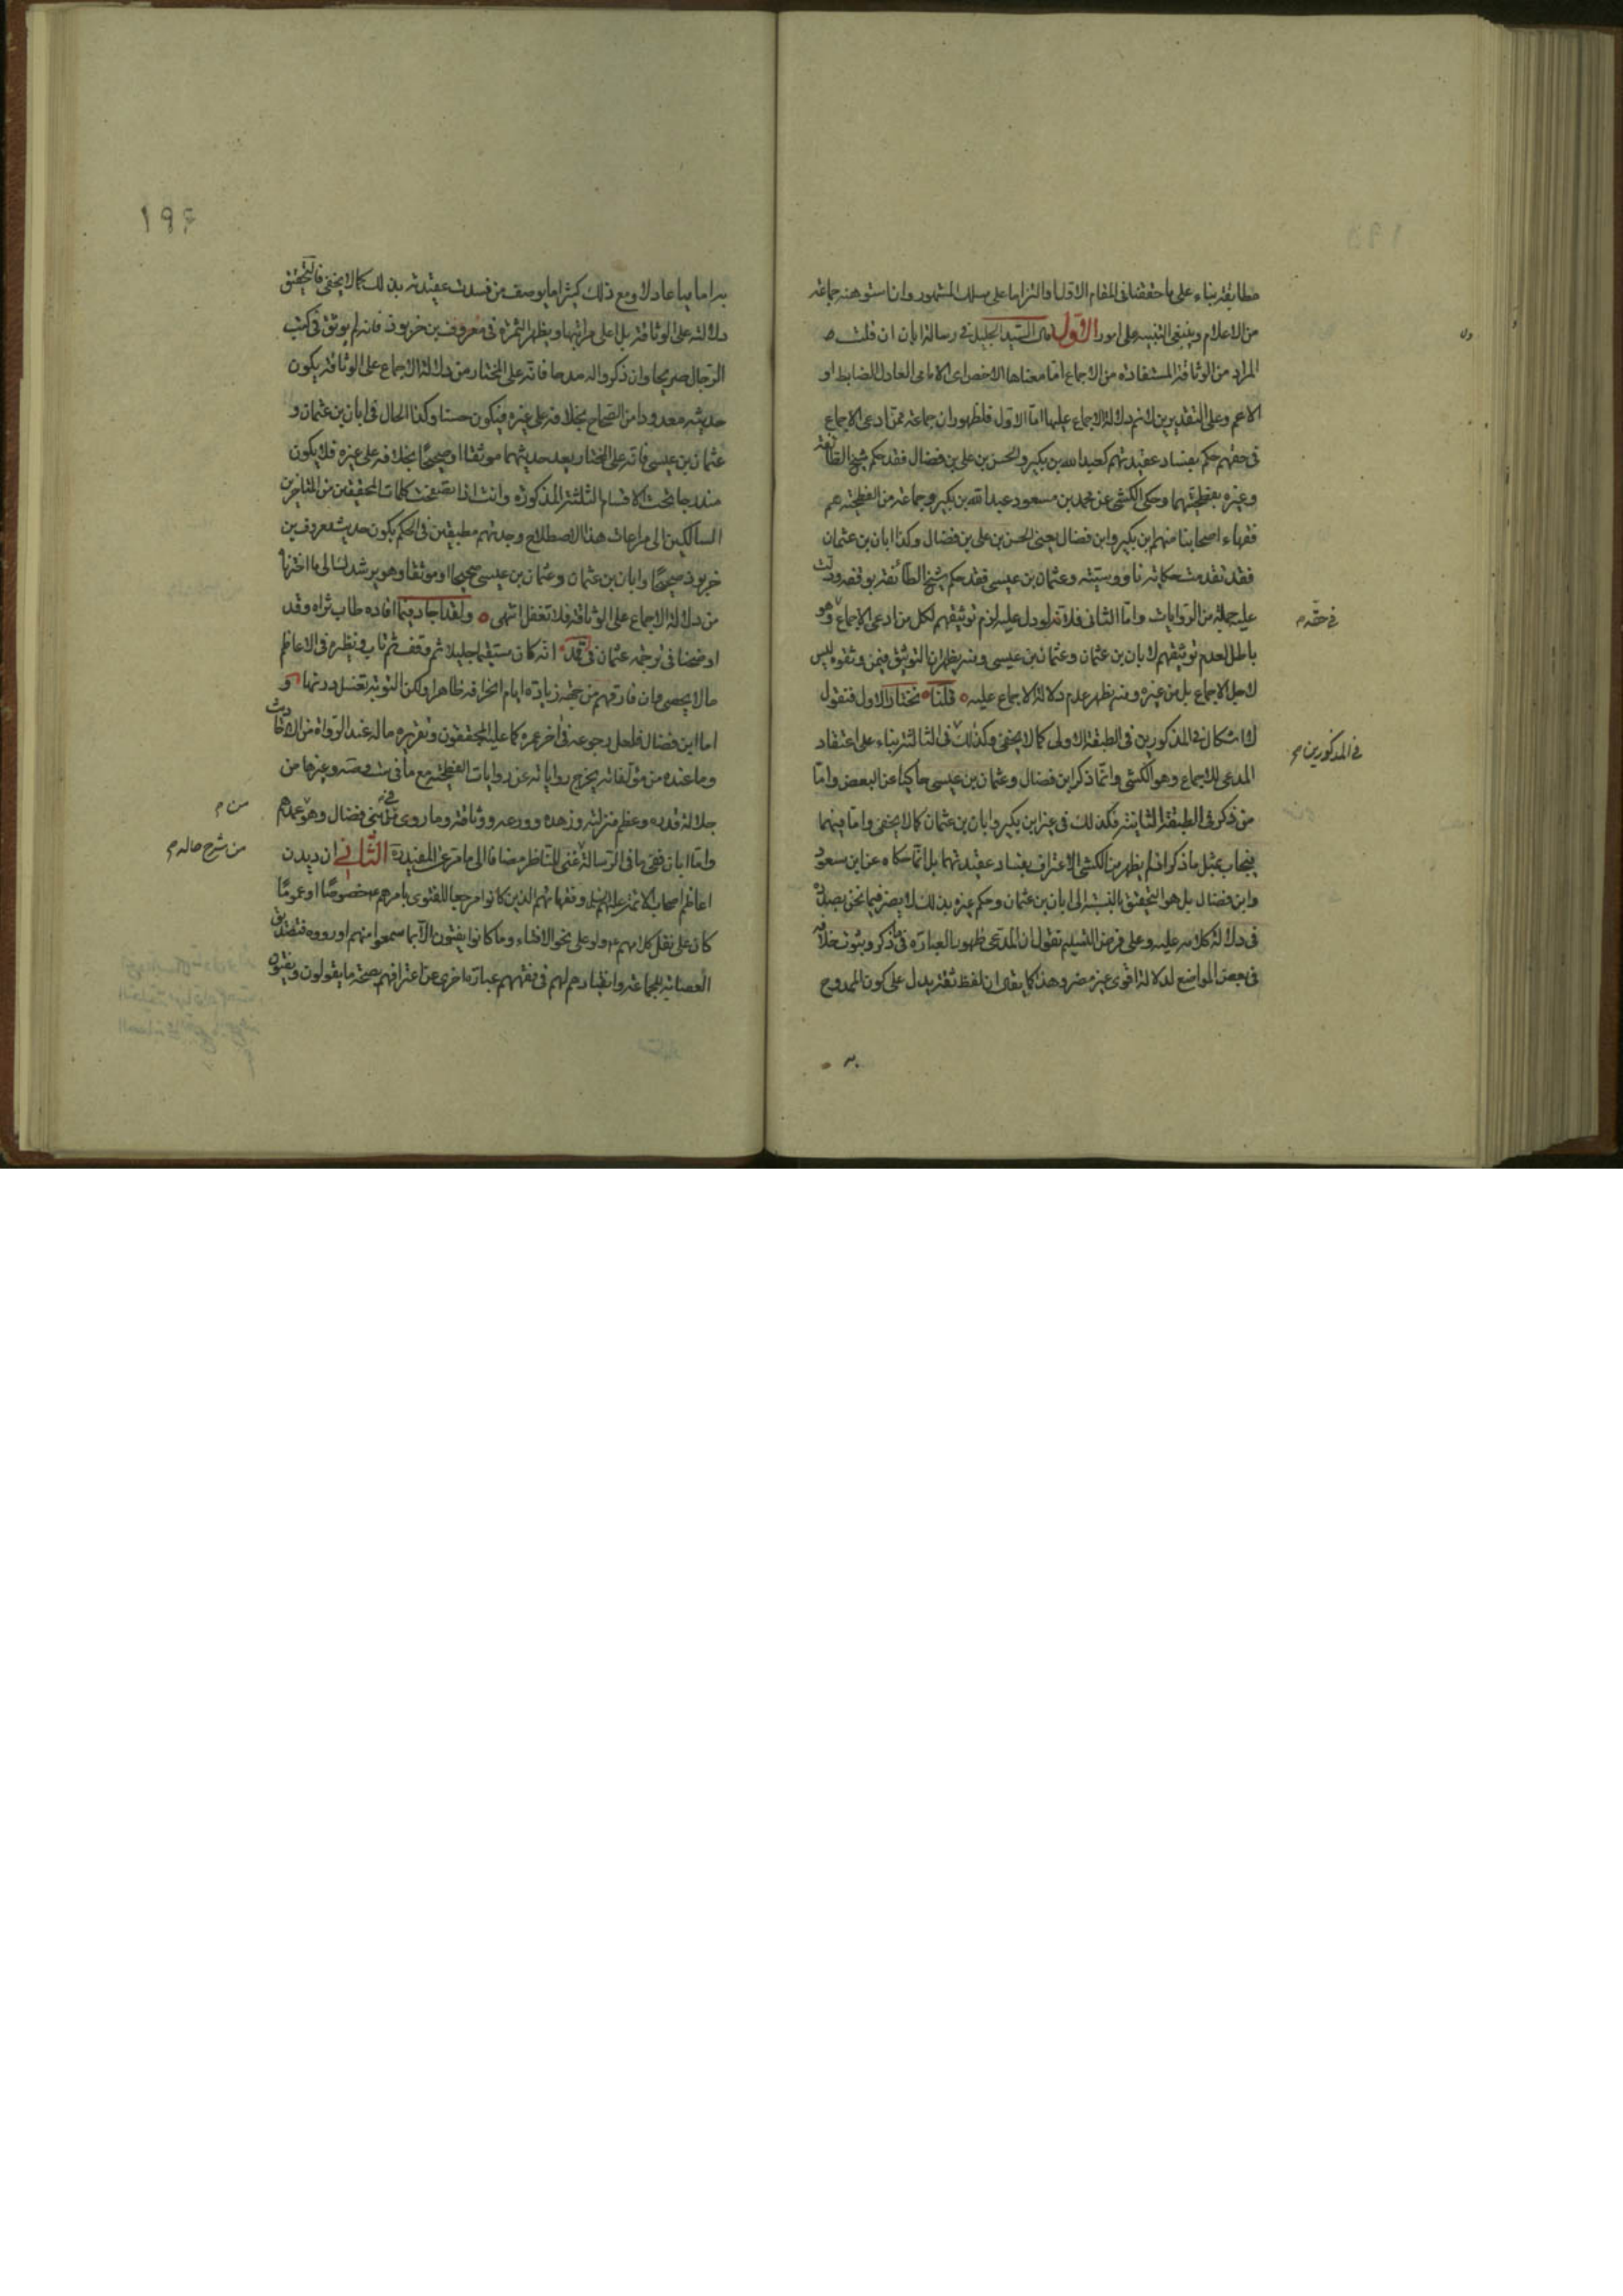 مطابقته بناء على ما حققنا فى المقام الاول او التزاما على مسلك المشهور وان استوهنه جماعة
من الاعلام وينبغى التنبيه على امور الاول قال السيد الجليل فى رسالة ابان ان قلت
المراد من الوثاقة المستفادة من الاجماع اما معناها الاخص اى الامامى العادل الضابط او
الاعم وعلى التقديرين لا نم دلالة الاجماع عليها اما الاول فلظهور ان جماعة ممن ادعى الاجماع
فى حقهم حكم بفساد عقيدتهم كعبد الله بن بكير والحسن بن على بن فضال فقد حكم شيخ الطائفة
وغيره بفطحيتهما وحكى الكشى عن محمد بن مسعود عبد الله بن بكير وجماعة من الفطحية هم
فقهاء اصحابنا منهم ابن بكير وابن فضال يعنى الحسن بن على بن فضال وكذا ابان بن عثمان
فقد تقدمت حكاية ناووسيته وعثمان بن عيسى فقد حكم شيخ الطائفة بوقفه ودلت
عليه جملة من الروايات واما الثانى فلانه لو دل عليه لزم توثيقهم لكل من ادعى الاجماع وهو
فى حقه م
باطل لعدم توثيقهم لابان بن عثمان وعثمان بن عيسى ومنه يظهر ان التوثيق فيمن وثقوه ليس
لاجل الاجماع بل من غيره ومنه يظهر عدم دلالة الاجماع عليه قلنا نختار الاول فنقول
لا اشكال فى المذكورين فى الطبقة الاولى كما لا يخفى وكذلك فى الثالثة بناء على اعتقاد
فى المذكورين م
المدعى للاجماع وهو الكشى وانما ذكر ابن فضال وعثمان بن عيسى حاكيا عن البعض واما
من ذكر فى الطبقة الثانية فكذلك فى غير ابن بكير وابان بن عثمان كما لا يخفى واما فيهما
فيجاب بمثل ما ذكر اذ لم يظهر من الكشى الاعتراف بفساد عقيدتهما بل انما حكاه عن ابن مسعود
وابن فضال بل هو التحقيق بالنسبة الى ابان بن عثمان وحكم غيره بذلك لا يضر فيما نحن بصدده
فى دلالة كلامه عليه وعلى فرض التسليم نقول ان المدعى ظهور العبارة فى ما ذكر وثبوت خلافه
فى بعض المواضع لدلالة اقوى غير مضر وهذا كما يقال ان لفظ ثقة يدل على كون الممدوح
به
١٩۶
به اماميا عادلا ومع ذلك كثيرا ما يوصف من فسدت عقيدته بذلك كما لا يخفى فالتحقيق
دلالته على الوثاقة بل اعلى مراتبها ويظهر الثمرة فى معروف بن خربوذ فانه لم يوثق فى كتب
الرجال صريحا وان ذكروا له مدحا فانه على المختار من دلالة الاجماع على الوثاقة يكون
حديثه معدودا من الصحاح بخلافه على غيره فيكون حسنا وكذا الحال فى ابان بن عثمان و
عثمان بن عيسى فانه على المختار يعد حديثهما موثقا او صحيحا بخلافه على غيره فلا يكون
مندرجا تحت الاقسام الثلثة المذكورة وانت اذا تصفحت كلمات المحققين من المتاخرين
السالكين الى مراعات هذا الاصطلاح وجدتهم مطبقين فى الحكم بكون حديث معروف بن
خربوذ صحيحا وابان بن عثمان وعثمان بن عيسى صحيحا او موثقا وهو يرشدك الى ما اخترنا
من دلالة الاجماع على الوثاقة فلا تغفل انتهى ولقد اجاد فيما افاده طاب ثراه وقد
اوضحنا فى ترجمة عثمان انه كان مستقيما جليلا ثم وقف ثم تاب ونظيره فى الاعاظم
ما لا يحصى وان فارقهم من جهة زيادة ايام انحرافه ظاهرا ولكن التوبة تغسل درنها و
اما ابن فضال فلعل رجوعه فى اخر عمره كما عليه المحققون وتقريره ما له عند الرواة من الاحاديث
وما عنده من مؤلفاته يخرج رواياته عن روايات الفطحية مع ما فى وغيرها من
جلالة قدره وعظم منزلته وزهده وورعه ووثاقته وما روى فى بنى فضال وهو عمدهم
من م
واما ابان ففى ما فى الرسالة غنى للناظر مضافا الى ما مر عن المفيد الثانى ان ديدن
من شرح حاله م
اعاظم اصحاب الائمة عليهم السلام وفقهائهم الذين كانوا مرجعا للفتوى بامرهم خصوصا او عموما
كان على نقل كلامهم ولو على نحو الافتاء وما كانوا يفتون الا بما سمعوا منهم او رووه فتصديق
العصابة الجماعة وانقيادهم لهم فى فقههم عبارة اخرى عن اعترافهم بصحة ما يقولون ويفتون